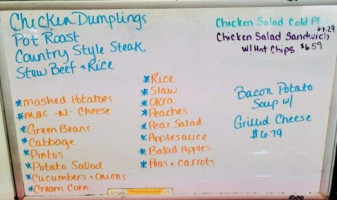 Chicken Dumplings
Pot Roast
Country Style Steak
Stew Beef + Rice
*mashed Potatoes
*mac -n- Cheese
*Green Beans
*Cabbage
*Pintos
*Potato Salad
*Cucumbers + Onions
*Cream Corn
*Rice
*Slaw
*Okra
*Peaches
*Pear Salad
*Applesauce
*Baked Apples
*Peas + Carrots
Chicken Salad Cold
Chicken Salad Sandwich
w/ Hot Chips $6.59
Bacon Potato
Soup w/
Grilled Cheese
$6.79